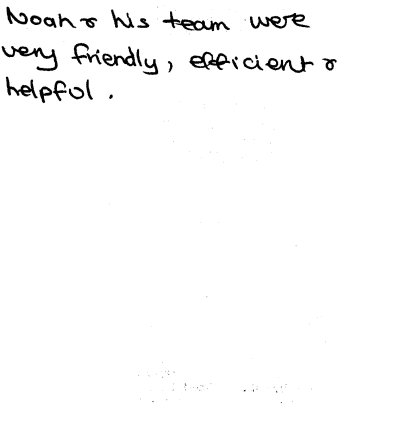 Noah & his team were
very friendly, efficient &
helpful.